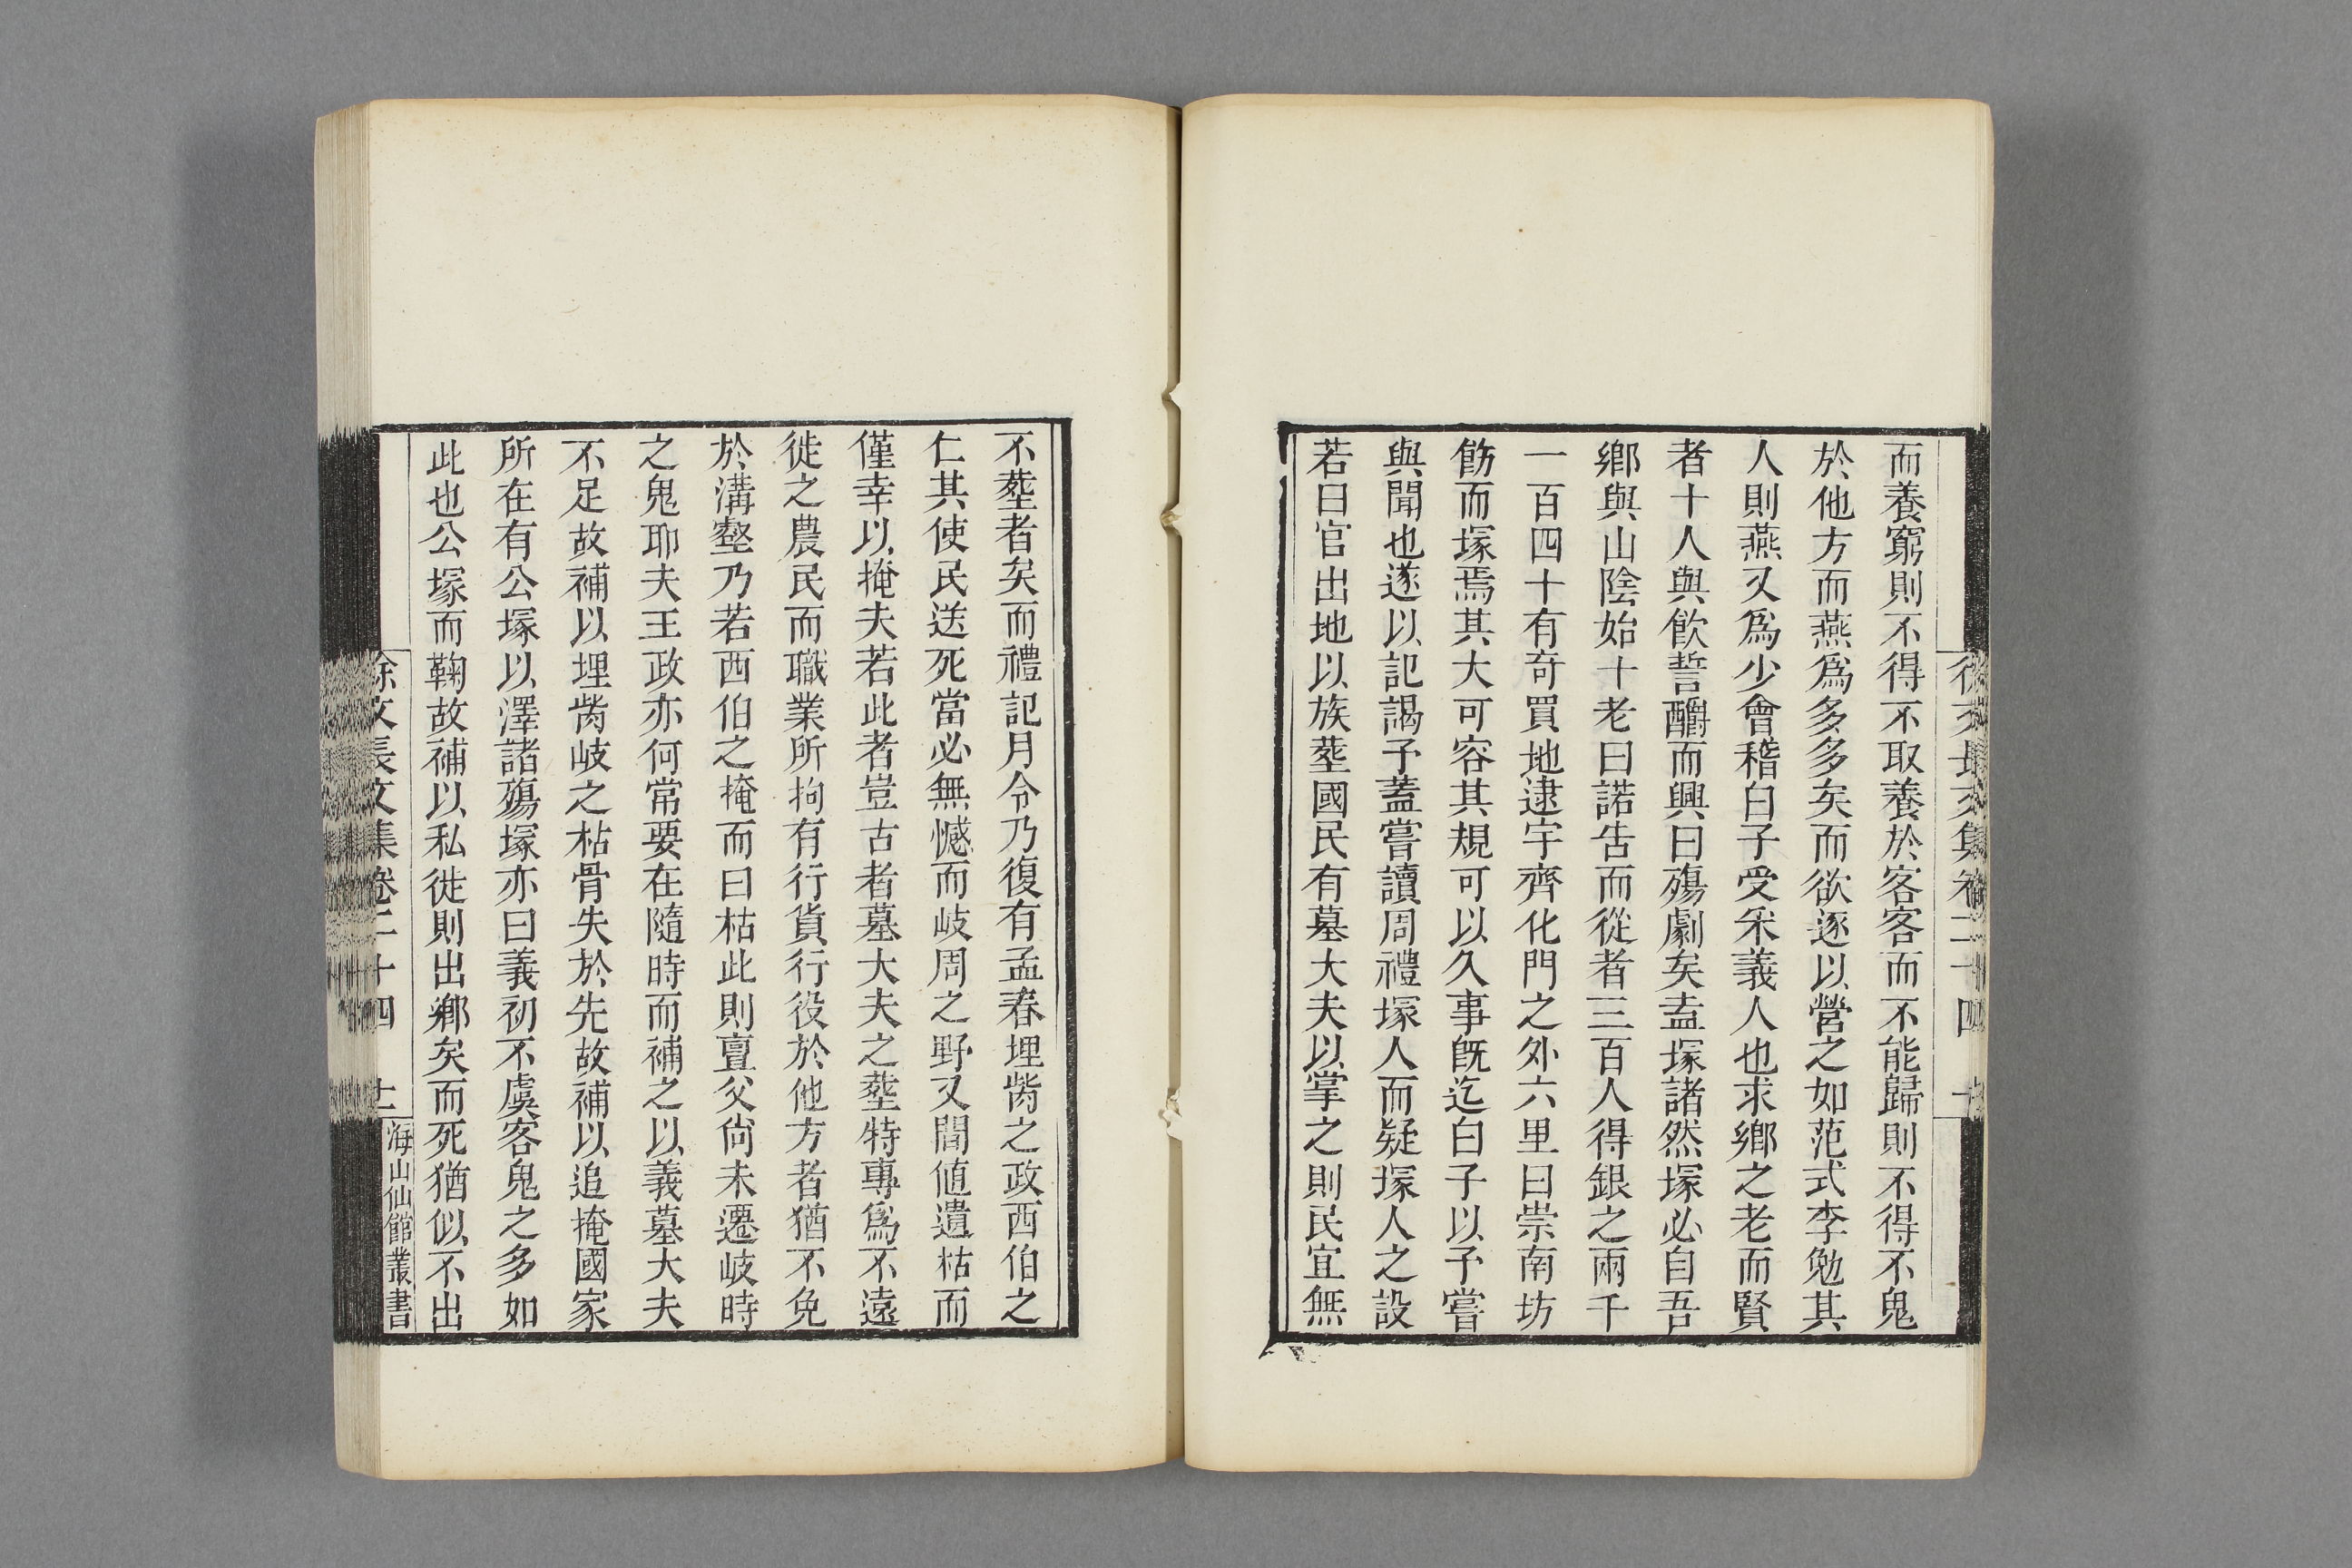 徐文長文集卷二十四
而養窮則不得不取養於客客而不能歸則不得不鬼
於他方而燕爲多多矣而欲逐以營之如范式李勉其
人則燕又爲少會稽白子受采義人也求鄉之老而賢
者十人與飲誓醻而興曰殤劇矣盍塚諸然塚必自吾
鄉與山陰始十老曰諾告而從者三百人得銀之兩千
一百四十有奇買地逮宇齊化門之外六里曰崇南坊
飭而塚焉其大可容其規可以久事旣迄白子以予嘗
與聞也遂以記謁予蓋嘗讀周禮塚人而疑塚人之設
若曰官出地以族塟國民有墓大夫以掌之則民宜無
不塟者矣而禮記月令乃復有孟春埋胔之政西伯之
仁其使民送死當必無憾而岐周之野又間値遺枯而
僅幸以掩夫若此者豈古者墓大夫之塟特專爲不遠
徙之農民而職業所拘有行貨行役於他方者猶不免
於溝壑乃若西伯之掩而曰枯此則亶父尙未遷岐時
之鬼耶夫王政亦何常要在隨時而補之以義墓大夫
不足故補以埋胔岐之枯骨失於先故補以追掩國家
所在有公塚以澤諸殤塚亦曰義初不虞客鬼之多如
此也公塚而鞠故補以私徙則出鄉矣而死猶似不出
徐文長文集卷二十四 十一 海山仙館叢書